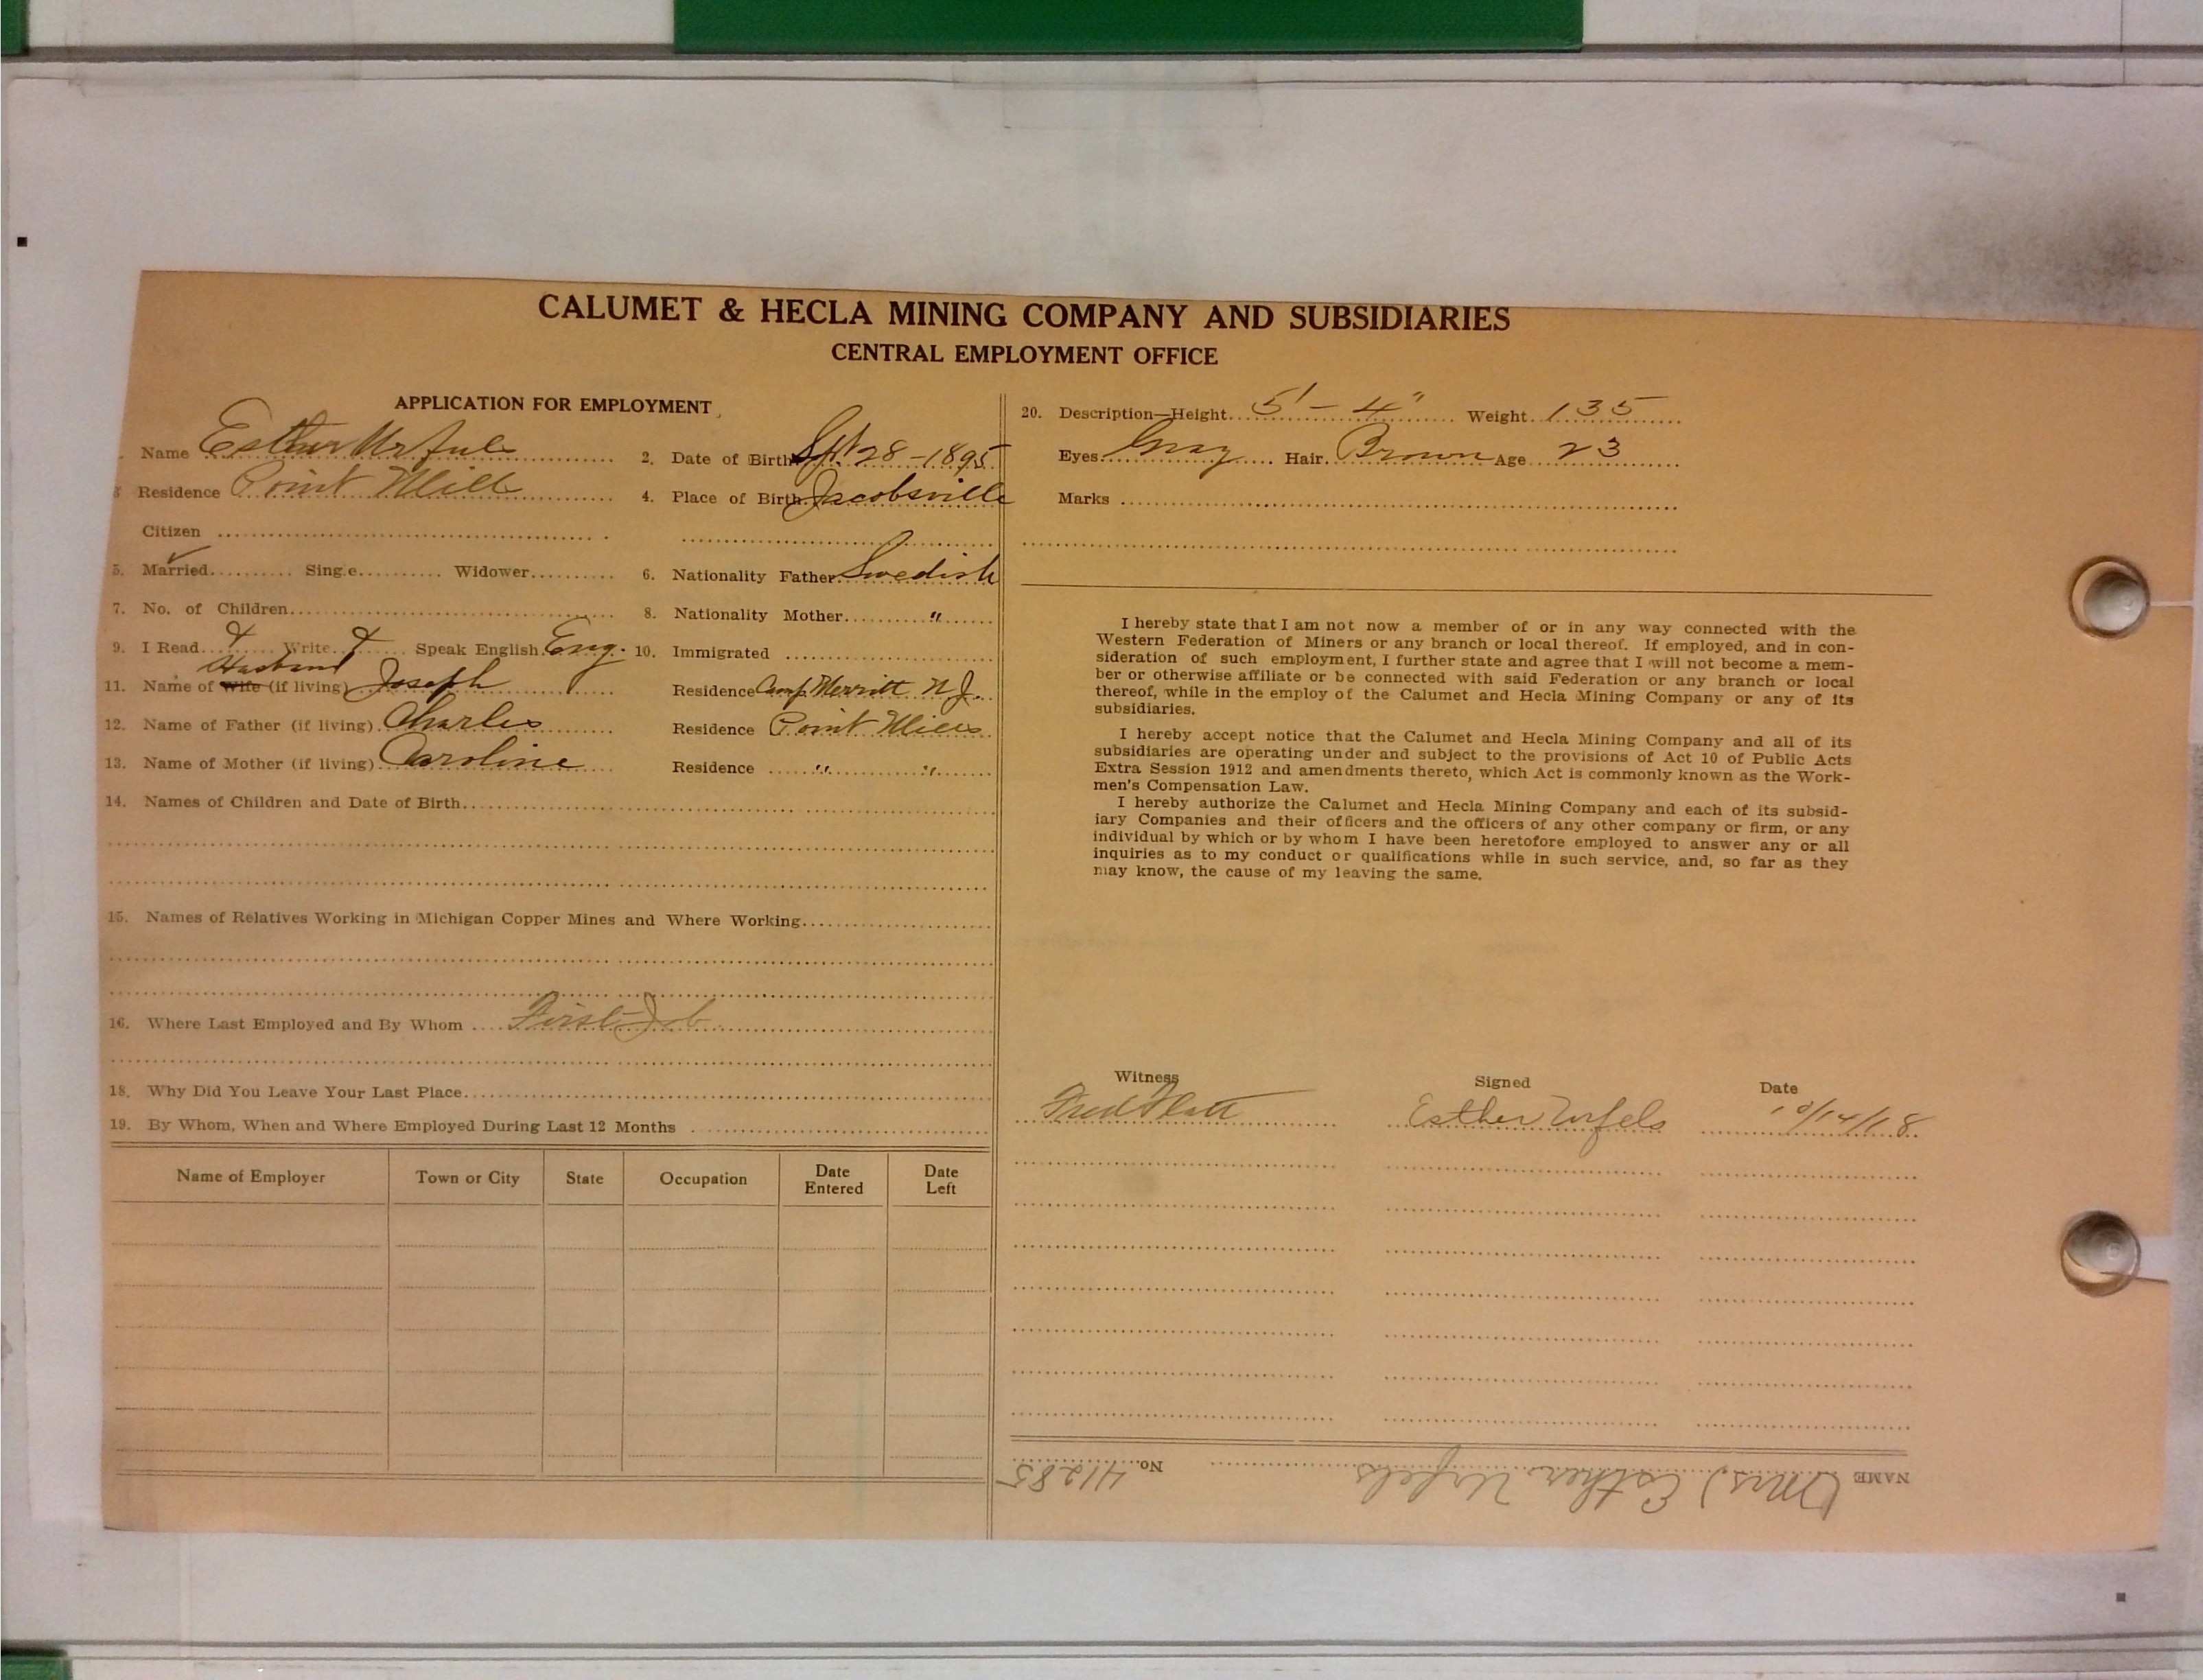 CALUMET & HECLA MINING COMPANY AND SUBSIDIARIES
CENTRAL EMPLOYMENT OFFICE
APPLICATION FOR EMPLOYMENT
Name Esther Urfels
2. Date of Birth Sept 28 - 1895
3 Residence Point Mills
4. Place of Birth Jacobsville
Citizen
5. Married Single Widower
6. Nationality Father Swedish
7. No. of Children
8. Nationality Mother "
9. I Read Write Speak English Eng.
10. Immigrated
Husband
11. Name of Wife (if living) Joseph
Residence Camp Merritt N J.
12. Name of Father (if living) Charles
Residence Point Mills
13. Name of Mother (if living) Caroline
Residence " "
14. Names of Children and Date of Birth
15. Names of Relatives Working in Michigan Copper Mines and Where Working
16. Where Last Employed and By Whom First Job
18. Why Did You Leave Your Last Place
19. By Whom, When and Where Employed During Last 12 Months
Name of Employer Town or City State Occupation Date Entered Date Left
20. Description—Height 5' - 4" Weight 135
Eyes Gray Hair Brown Age 23
Marks
I hereby state that I am not now a member of or in any way connected with the
Western Federation of Miners or any branch or local thereof. If employed, and in con-
sideration of such employment, I further state and agree that I will not become a mem-
ber or otherwise affiliate or be connected with said Federation or any branch or local
thereof, while in the employ of the Calumet and Hecla Mining Company or any of its
subsidiaries.
I hereby accept notice that the Calumet and Hecla Mining Company and all of its
subsidiaries are operating under and subject to the provisions of Act 10 of Public Acts
Extra Session 1912 and amendments thereto, which Act is commonly known as the Work-
men's Compensation Law.
I hereby authorize the Calumet and Hecla Mining Company and each of its subsid-
iary Companies and their officers and the officers of any other company or firm, or any
individual by which or by whom I have been heretofore employed to answer any or all
inquiries as to my conduct or qualifications while in such service, and, so far as they
may know, the cause of my leaving the same.
Witness Signed Date
Fred Platt Esther Urfels 10/14/18
NAME (Mrs) Esther Urfels No. 41285